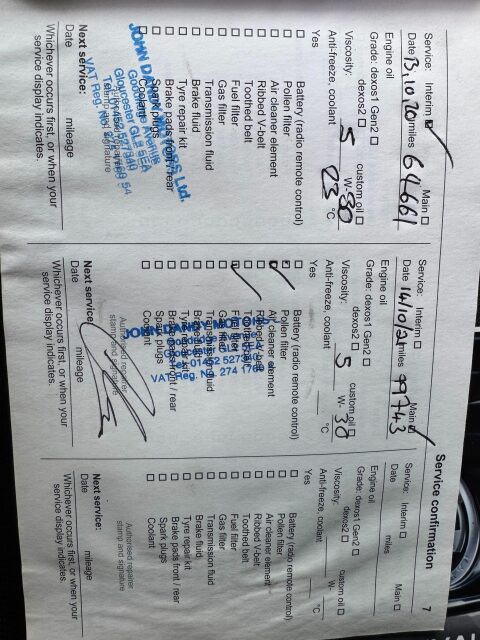 Service confirmation
7
Service: Interim ☑ Main ☐
Date 13,10,20 miles 64661
Engine oil
Grade: dexos1 Gen2 ☐
dexos2 ☐ custom oil ☐
Viscosity: 5 W- 30
Anti-freeze, coolant 23 °C
Yes
☐ Battery (radio remote control)
☐ Pollen filter
☐ Air cleaner element
☐ Ribbed V-belt
☐ Toothed belt
☐ Fuel filter
☐ Gas filter
☐ Transmission fluid
☐ Brake fluid
☐ Tyre repair kit
☐ Brake pads front / rear
☐ Spark plugs
☐ Coolant
Gloucester GL2 5EA
VAT Reg. No.
Next service:
Date mileage
Whichever occurs first, or when your
service display indicates.
Service: Interim ☐ Main ☑
Date 14/10/21 miles 99743
Engine oil
Grade: dexos1 Gen2 ☐
dexos2 ☐ custom oil ☐
Viscosity: 5 W- 30
Anti-freeze, coolant °C
Yes
☐ Battery (radio remote control)
☑ Pollen filter
☑ Air cleaner element
☐ Ribbed V-belt
☐ Toothed belt
☑ Fuel filter
☐ Gas filter
☐ Transmission fluid
☐ Brake fluid
☐ Tyre repair kit
☐ Brake pads front / rear
☐ Spark plugs
☐ Coolant
VAT Reg. No. 274
Authorised repairer
stamp and signature
Next service:
Date mileage
Whichever occurs first, or when your
service display indicates.
Service: Interim ☐ Main ☐
Date miles
Engine oil
Grade: dexos1 Gen2 ☐
dexos2 ☐ custom oil ☐
Viscosity: W-
Anti-freeze, coolant °C
Yes
☐ Battery (radio remote control)
☐ Pollen filter
☐ Air cleaner element
☐ Ribbed V-belt
☐ Toothed belt
☐ Fuel filter
☐ Gas filter
☐ Transmission fluid
☐ Brake fluid
☐ Tyre repair kit
☐ Brake pads front / rear
☐ Spark plugs
☐ Coolant
Authorised repairer
stamp and signature
Next service:
Date mileage
Whichever occurs first, or when your
service display indicates.